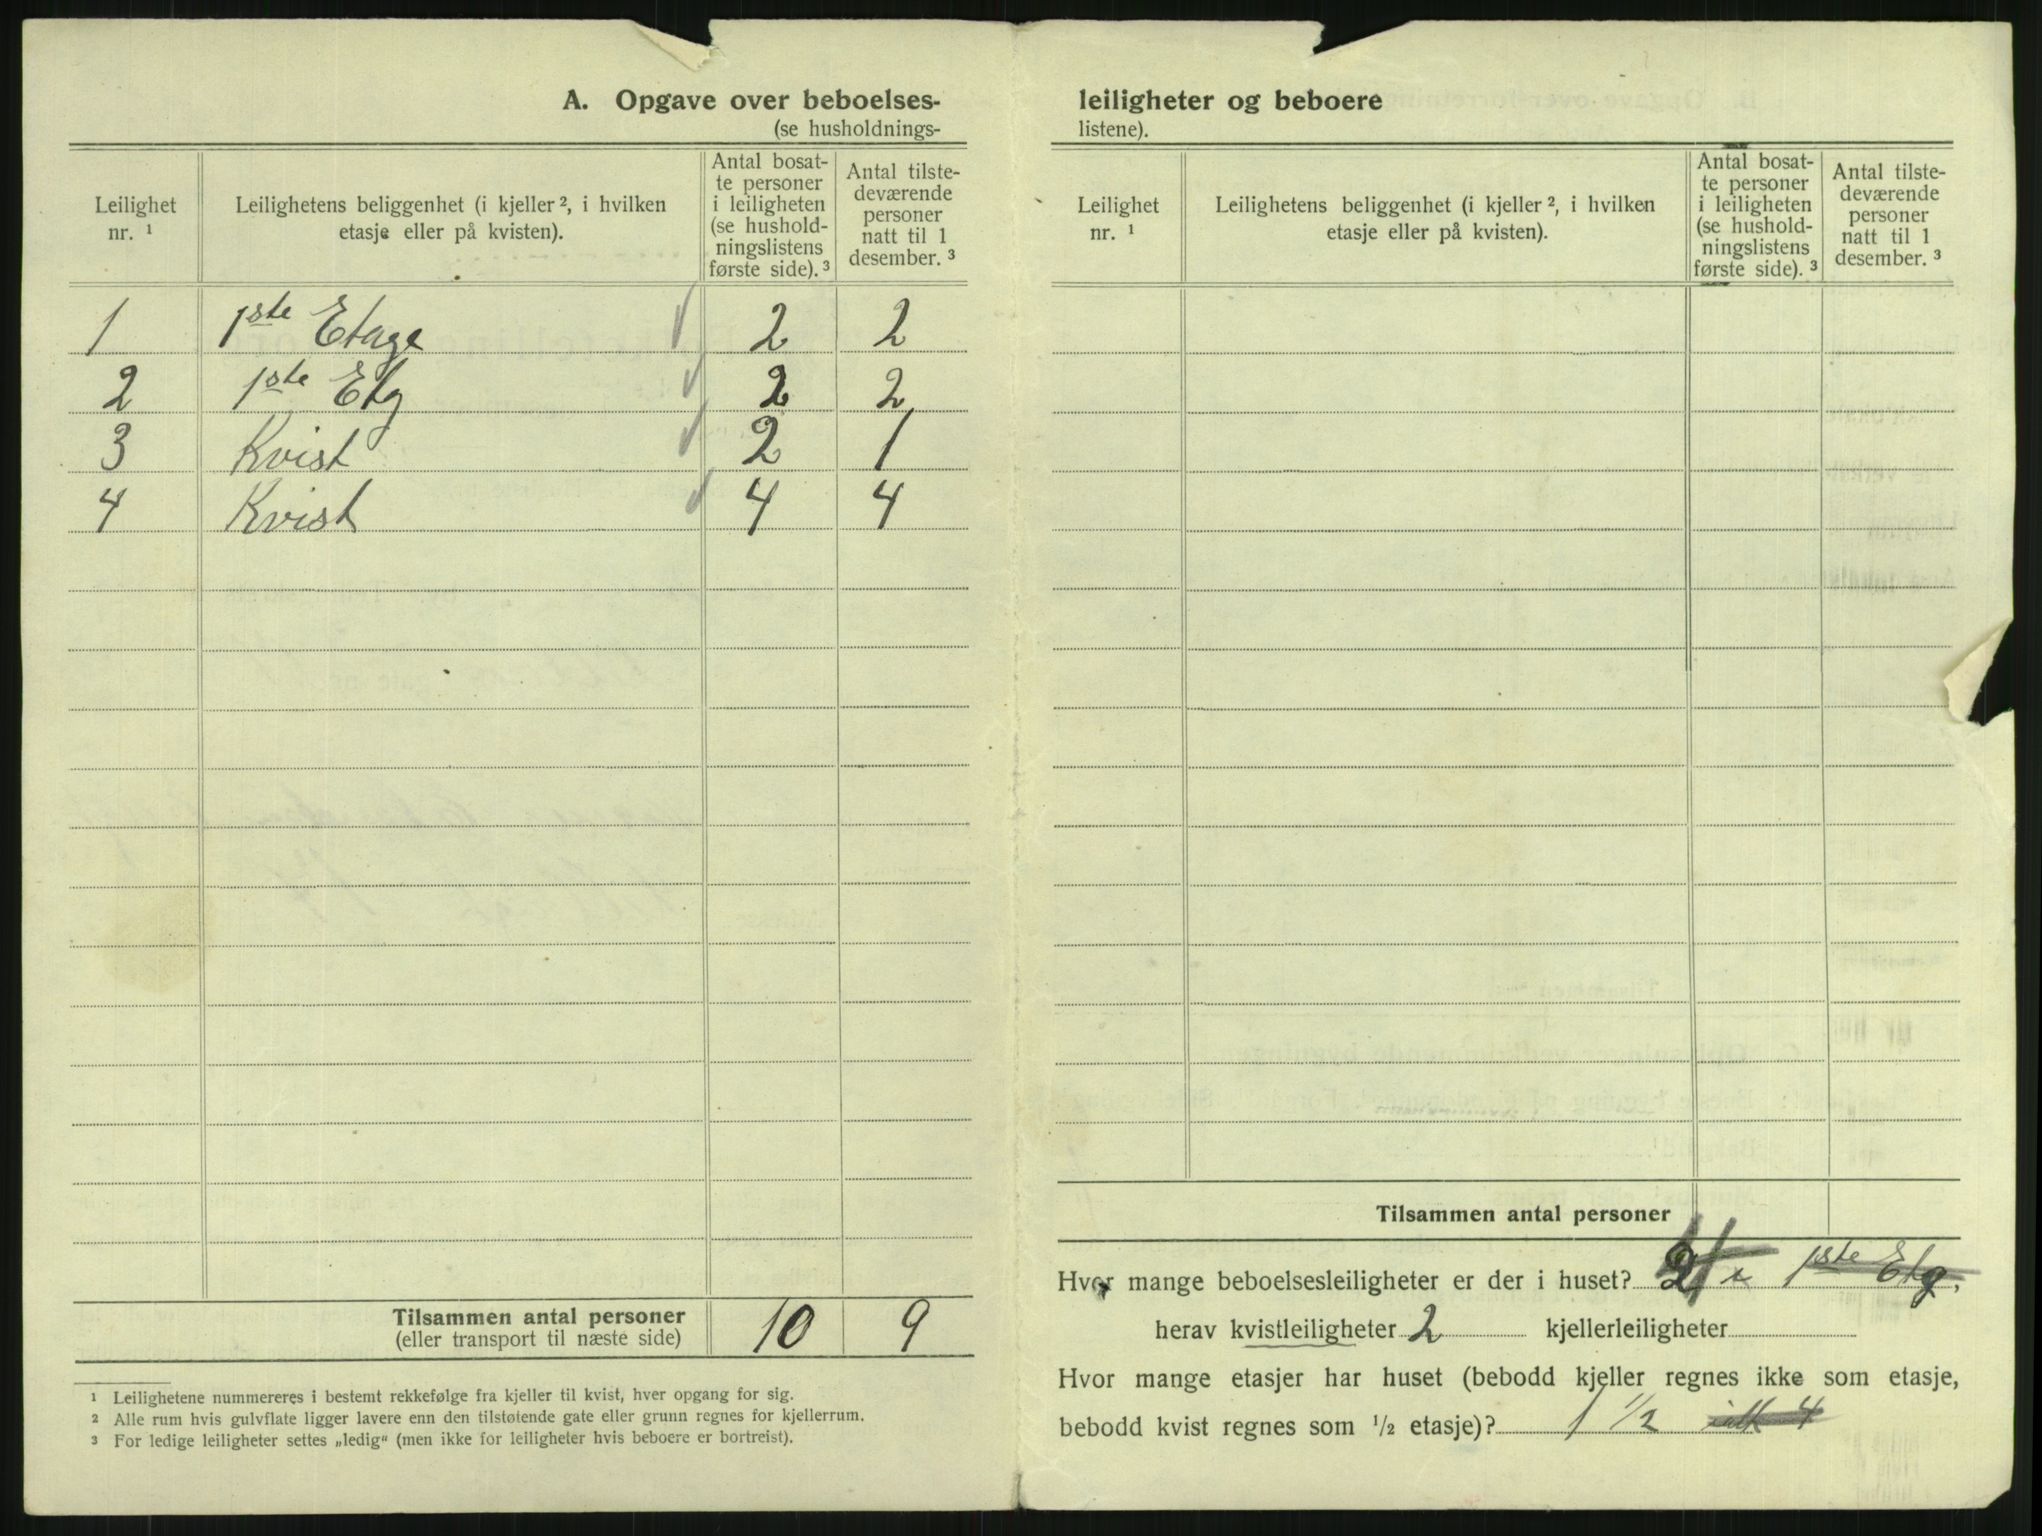 A. Opgave over beboelses-
(se husholdnings-
Leilighet nr. ¹
Leilighetens beliggenhet (i kjeller ², i hvilken
etasje eller på kvisten).
Antal bosat-
te personer
i leiligheten
(se hushold-
ningslistens
første side). ³
Antal tilste-
deværende
personer
natt til 1
desember. ³
1 1ste Etage 2 2
2 1ste Etg 2 2
3 Kvist 2 1
4 Kvist 4 4
Tilsammen antal personer 10 9
(eller transport til næste side)
¹ Leilighetene nummereres i bestemt rekkefølge fra kjeller til kvist, hver opgang for sig.
² Alle rum hvis gulvflate ligger lavere enn den tilstøtende gate eller grunn regnes for kjellerrum.
³ For ledige leiligheter settes „ledig“ (men ikke for leiligheter hvis beboere er bortreist).
leiligheter og beboere
listene).
Leilighet
nr. ¹
Leilighetens beliggenhet (i kjeller ², i hvilken
etasje eller på kvisten).
Antal bosat-
te personer
i leiligheten
(se hushold-
ningslistens
første side). ³
Antal tilste-
deværende
personer
natt til 1
desember. ³
Tilsammen antal personer
Hvor mange beboelsesleiligheter er der i huset? 4 1ste Etg,
herav kvistleiligheter 2 kjellerleiligheter
Hvor mange etasjer har huset (bebodd kjeller regnes ikke som etasje,
bebodd kvist regnes som ½ etasje)? 1 ½ ialt 4